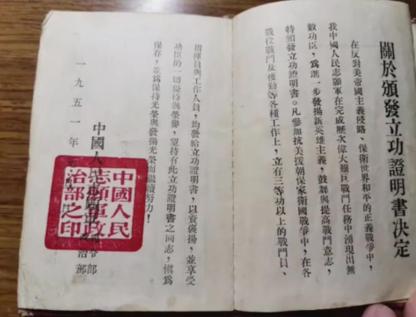 關於頒發立功證明書決定
在反對美帝國主義侵略、保衛世界和平的正義戰爭中，
我中國人民志願軍在完成歷次偉大艱巨戰鬥任務中湧現出無
數功臣，為進一步發揚新英雄主義，鼓舞與提高戰鬥意志，
特頒發立功證明書。凡參加抗美援朝保家衛國戰爭中，在各
戰役戰鬥及後勤等各種工作上，立有三等功以上的戰鬥員、
指揮員與工作人員，均發給立功證明書，以資褒揚，並享受
功臣的一切優待與榮譽，望持有此立功證明書之同志，愼為
保存，並為保持光榮與發揚光榮而繼續努力！
中國人民
部
治部
一九五一年
中國人民
志願軍政
治部之印